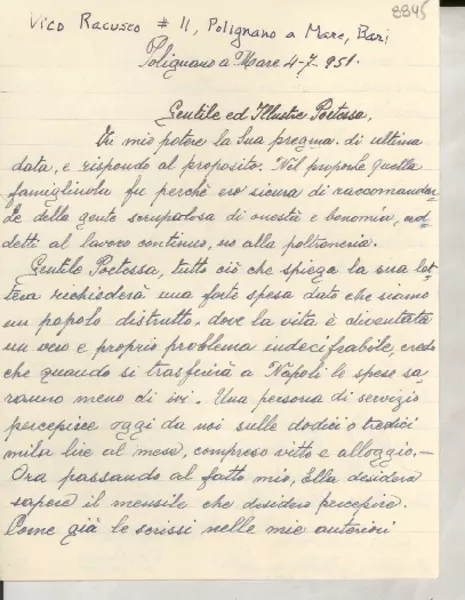 8845
Vico Racusco # 11, Polignano a Mare, Bari
Polignano a Mare 4-7-951.
Gentile ed Illustre Poetessa,
In mio potere la Sua pregma. di ultima
data, e rispondo al proposito. Nel proporle quella
famigliuola fu perchè ero sicura di raccomandar-
le della gente scrupolosa di onestà e bonomia, ad-
detti al lavoro continuo, no alla poltroneria.
Gentile Poetessa, tutto ciò che spiega la sua let-
tera richiederà una forte spesa dato che siamo
un popolo distrutto, dove la vita è diventata
un vero e proprio problema indecifrabile, credo
che quando si trasferirà a Napoli le spese sa-
ranno meno di ivi. Una persona di servizio
percepisce oggi da noi sulle dodici o tredici
mila lire al mese, compreso vitto e alloggio.-
Ora passando al fatto mio, Ella desidera
sapere il mensile che desidero percepire.
Come già le scrissi nelle mie anteriori